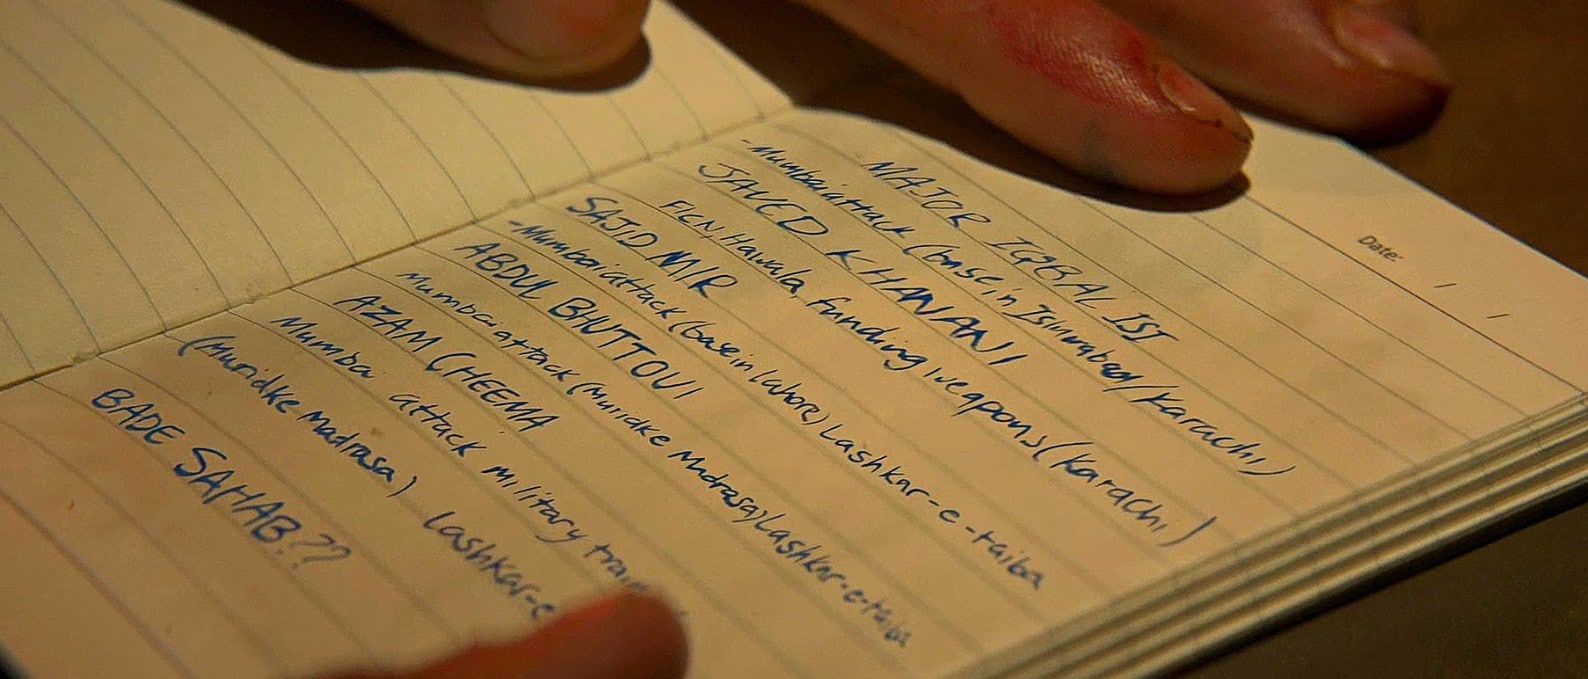 Date: / /
MAJOR IQBAL ISI
-Mumbai attack (base in Islmabad/Karachi)
JAVED KHANANI
FICN, Hawala, funding weapons (Karachi)
SAJID MIR
-Mumbai attack (base in lahore) Lashkar-e-taiba
ABDUL BHUTTOVI
Mumbai attack (Muridke Madrasa) Lashkar-e-taiba
AZAM CHEEMA
Mumbai attack military
(Muridke Madrasa) lashkar-e
BADE SAHAB??